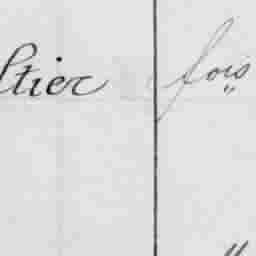 ltier fois
"